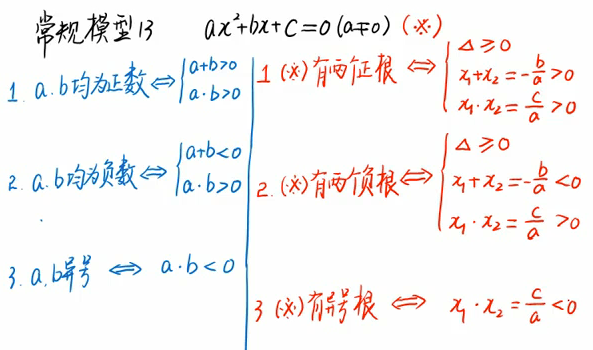 常规模型13 ax²+bx+c=0(a≠0) (※)
1. a.b均为正数⇔{a+b>0
a·b>0
2. a.b均为负数⇔{a+b<0
a·b>0
3. a.b异号 ⇔ a·b<0
1 (※)有两正根 ⇔ {Δ≥0
x₁+x₂=-b/a>0
x₁·x₂=c/a>0
2. (※)有两个负根⇔{Δ≥0
x₁+x₂=-b/a<0
x₁·x₂=c/a>0
3 (※)有异号根 ⇔ x₁·x₂=c/a<0